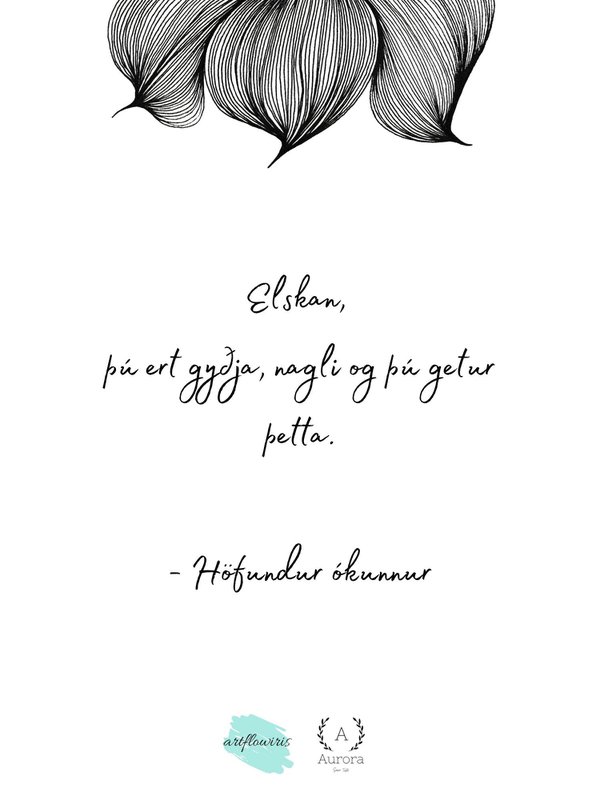 Elskan,
þú ert gyðja, nagli og þú getur
þetta.
- Höfundur ókunnur
artflowiris
A
Aurora